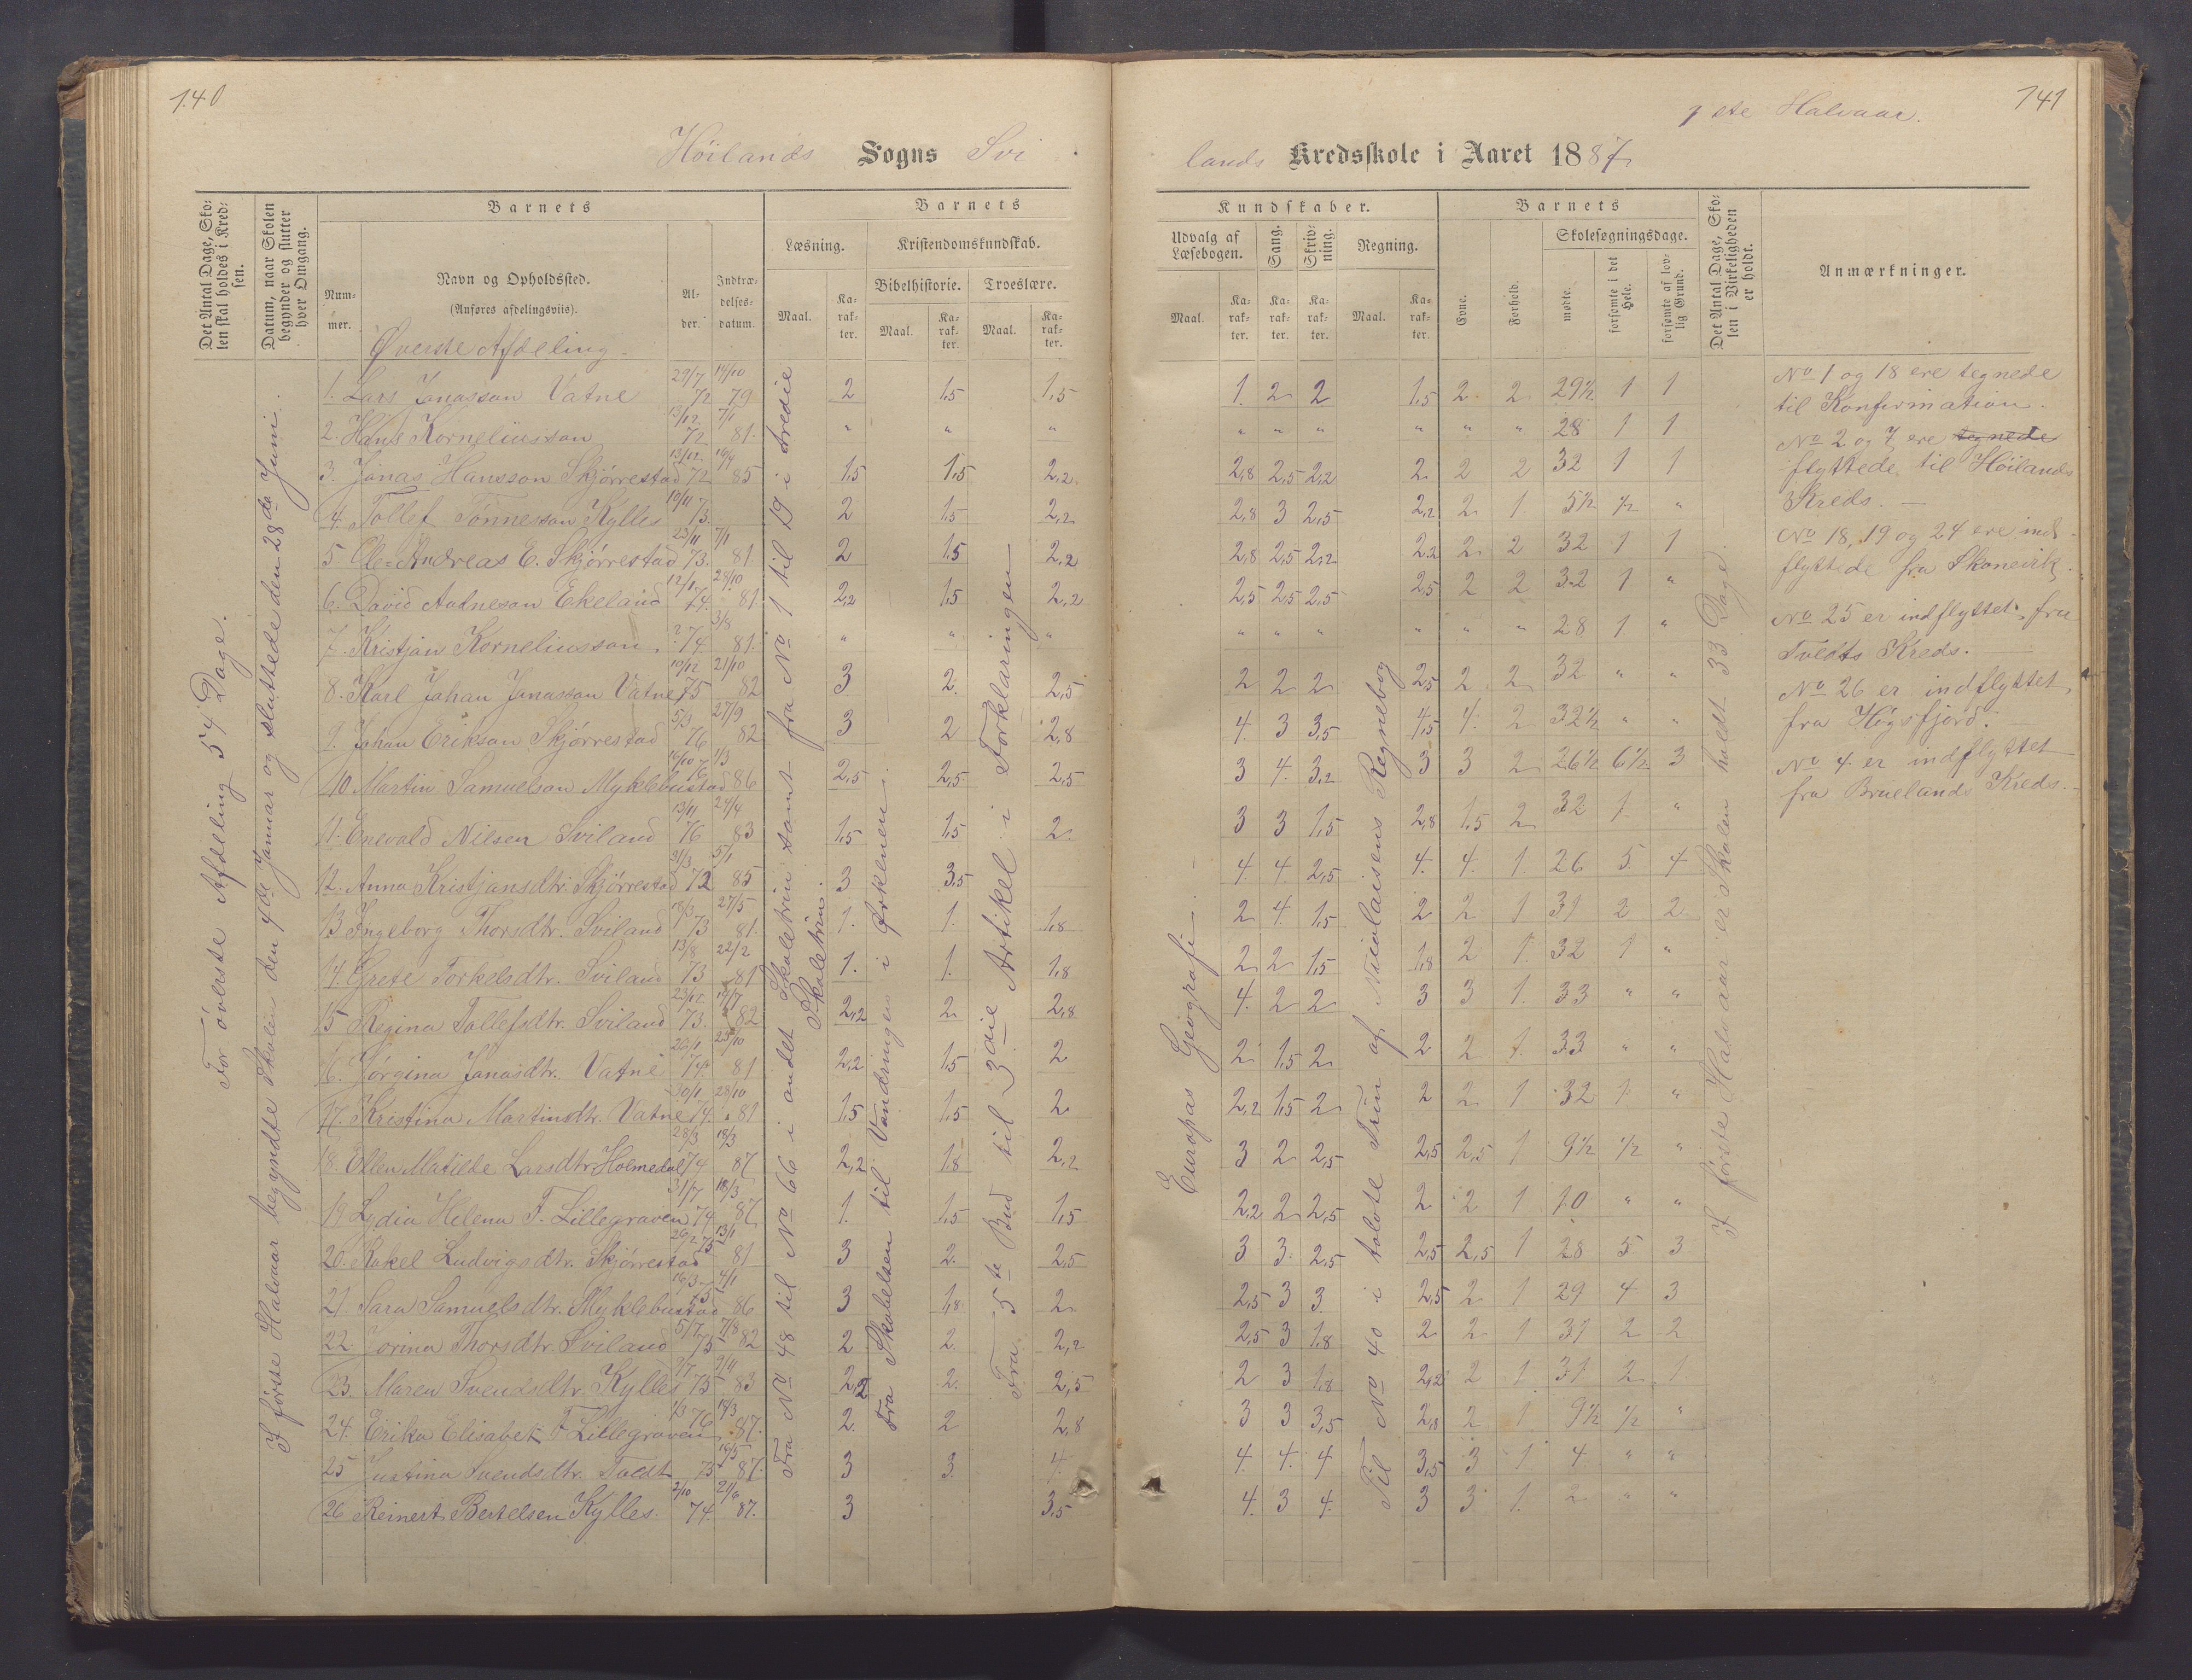 140
Höilands Sogns Svi
1ste Halvaar.
141
lands Kredsskole i Aaret 1887
Det Antal Dage, Sko-
len skal holdes i Kred-
sen.
Datum, naar Skolen
begynder og slutter
hver Omgang.
Barnets
Num-
mer.
Navn og Opholdssted.
(Anføres afdelingsviis).
Al-
der.
Indtræ-
delses-
datum.
Barnets
Læsning.
Maal.
Ka-
rak-
ter.
Kristendomskundskab.
Bibelhistorie.
Maal.
Ka-
rak-
ter.
Troeslære.
Maal.
Ka-
rak-
ter.
Kundskaber.
Udvalg af
Læsebogen.
Maal.
Ka-
rak-
ter.
Sang.
Ka-
rak-
ter.
Skriv-
ning.
Ka-
rak-
ter.
Regning.
Maal.
Ka-
rak-
ter.
Barnets
Evne.
Forhold.
Skolesøgningsdage.
mødte.
forsømte i det
Hele.
forsømte af lov-
lig Grund.
Det Antal Dage, Sko-
len i Virkeligheden
er holdt.
Anmærkninger.
For överste Afdeling 54 Dage.
I første Halvaar begyndte Skolen den 4de Januar og sluttede den 28de Juni.
Øverste Afdeling.
1. Lars Jonasson Vatne 29/7 72 14/10 79 2 1,5 1,5 1. 2 2 1,5 2 2 29½ 1 1
2. Hans Korneliusson 13/12 72 7/1 81. " " " " " " " " " 28 1 1
3. Jonas Hansson Skjørrestad 13/12 72 16/9 85 1,5 1,5 2,2 2,8 2,5 2,2 2 2 2 32 1 1
4. Tollef Tønnesson Kylles 10/11 73. 2 1,5 2,2 2,8 3 2,5 2,2 2 1 5½ ½ "
5 Ole Andreas E. Skjørrestad 23/11 73. 7/1 81 2 1,5 2,2 2,8 2,5 2,2 2,2 2 2 32 1 1
6. David Aatneson Ekeland 12/1 74. 28/10 81 2,2 1,5 2,2 2,5 2,5 2,5 2,5 2 2 32 1 "
7. Kristjan Korneliusson ? 74. 3/8 81. " " " " " " " " " 28 1. "
8. Karl Johan Jonasson Vatne 10/12 75 21/10 82 3 2. 2,5 2 2 2 2,5 2 2 32 " "
9. Johan Erikson Skjørrestad 5/3 76 27/9 82 3 2 2,8 4. 3 3,5 4,5 4. 2 32½ " "
10 Martin Samuelson Myklebustad 14/10 76 1/3 86 2,5 2,5 2,5 3 4. 3,2 3 3 2 26½ 6½ 3
11. Enevald Nilsen Sviland 13/11 76 24/4 83 1,5 1,5 2. 3 3 1,5 2,8 1,5 2 32 1. "
12. Anna Kristjansdtr. Skjørrestad 21/3 72 5/1 85 3 3,5 4. 4. 2,5 4. 4. 1. 26 5. 4
13 Ingeborg Thorsdtr. Sviland 18/3 73 27/5 81. 1. 1. 1,8 2 4. 1,5 2 2 1 31 2 2
14. Grete Torkelsdtr. Sviland 13/8 73 22/2 81 1. 1. 1,8 2 2 1,5 1,8 2 1. 32 1 "
15 Regina Tollefsdtr. Sviland 23/12 73. 14/7 82 2,2 2 2,8 4. 2 2 3 3 1. 33 " "
16. Jørgina Jonasdtr. Vatne 26/1 74. 25/10 81 2,2 1,5 2 2 1,5 2 2 2 1. 33 " "
17. Kristina Martinsdtr. Vatne 30/1 74. 28/10 81 1,5 1,5 2 2,2 1,5 2 2 2 1 32 1. "
18. Ellen Matilde Larsdtr. Holmedal 28/3 74 18/3 87 2,2 1,8 2,2 3 2 2,5 2,5 2,5 1 9½ ½ "
19 Lydia Helena F. Lillegraven 31/7 74 18/3 87 1. 1,5 1,5 2,2 2 2,5 2 2 1 10 " "
20. Rakel Ludvigsdtr. Skjørrestad 26/2 75 13/1 81 3 2. 2,5 3 3 2,5 2,5 2,5 1 28 5 3
21. Sara Samuelsdtr. Myklebustad 16/3 75 4/1 86 3 1,8 2 2,5 3 3. 2,5 2 1 29 4 3
22. Jorina Thorsdtr. Sviland 5/7 75 17/8 82 2 2. 2,2 2,5 3 1,8 2 2 1 31 2 2
23. Maren Svendsdtr. Kylles 7/7 75 2/11 83 2,2 2. 2,5 2 3 1,8 2,2 2 1. 31 2 1
24. Erika Elisabet F Lillegraven 1/3 76 18/3 87. 2. 2 2,8 3 3 3,5 2,8 2 1 9½ ½ "
25 Justina Svendsdtr. Tvedt 75 16/5 87. 3 3. 4. 4. 4. 4 3,5 3 1 4. " "
26 Reinert Bertelsen Kylles. 2/10 74 21/6 87. 3 3,5 4. 3 4. 3 3 1. 2 " "
Fra No 48 til No 66 i andet Skoletrin samt fra No 1 til 19 i tredie
Skoletrin.
Fra Skabelsen til Vandringen i Ørkenen.
Fra 5te Bud til 3die Artikel i Forklaringen
Europas Geografi.
Til No 40 i tolvte Trin af Nicolaisens Regnebog
I første Halvaar er Skolen holdt 33 Dage.
No 1 og 18 ere tegnede
til Konfirmation.
No 2 og 7 ere tegnede
flyttede til Höilands
Kreds. —
No 18, 19 og 24 ere ind-
flyttede fra Skonevik.
No 25 er indflyttet fra
Tvedts Kreds.
No 26 er indflyttet
fra Høgsfjord.
No 4. er indflyttet
fra Bruelands Kreds.